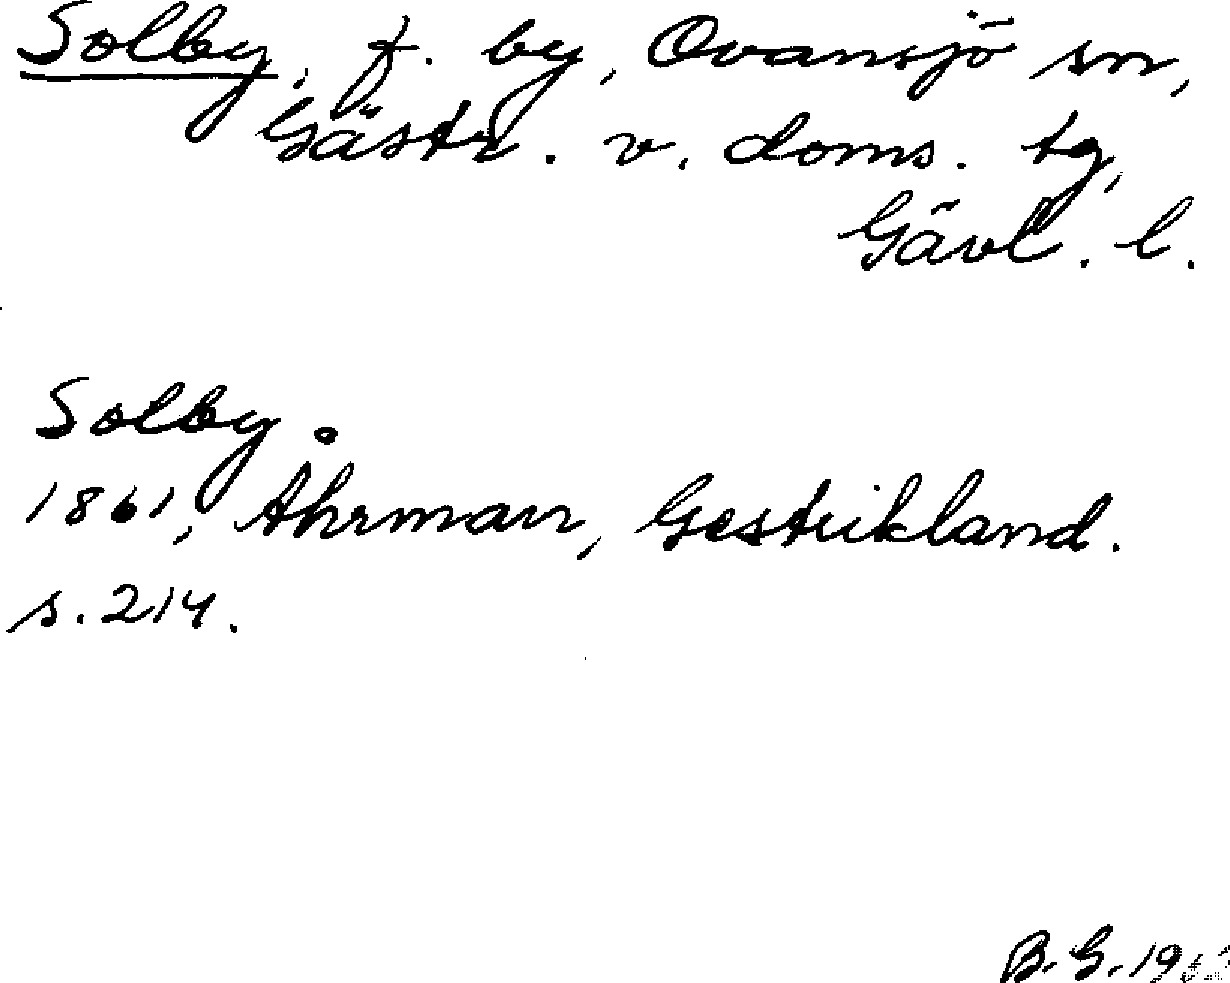 Solby, f. by, Ovansjö sn,
Gästr. v. doms. tg,
Gävl. l.
Solby.
1861, Åhrman, Gestrikland.
s. 214.
B. G.